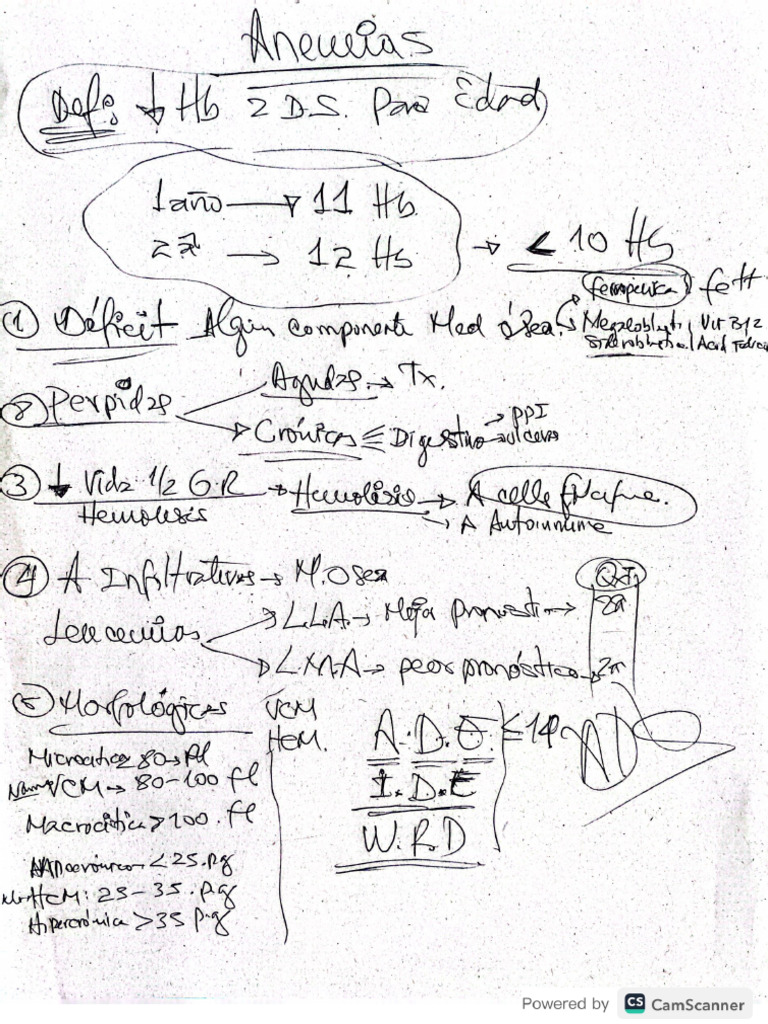 Anemias
Def: ↓ Hb 2 D.S. Para Edad
1 año → 11 Hb.
2a → 12 Hb → < 10 Hb
ferropenica fe++
① Déficit Algun componente Med ósea. Megaloblasti Vit B12
Sideroblastica Acid Folico
② Perpidas Agudas → Tx.
Crónicas Digestivo → PPI
→ ulceras
③ ↓ Vida 1/2 G.R → Hemolisis → A celle
Hemolisis → A Autoinmune
④ A Infiltrativas → M. Osea QxT
Leucemias → LLA → Mejor pronosti → 3a
→ LMA → peor pronóstico → 2a
⑤ Morfológicas VCM
HCM.
Microcitica 80 fl
VCM → 80-100 fl
Macrocitica > 100. fl
< 25. pg
HCM: 25 - 35. pg
Hipercrómica > 35 pg
A. D. E ≤ 14
I. D. E
W. R. D
Powered by CS CamScanner